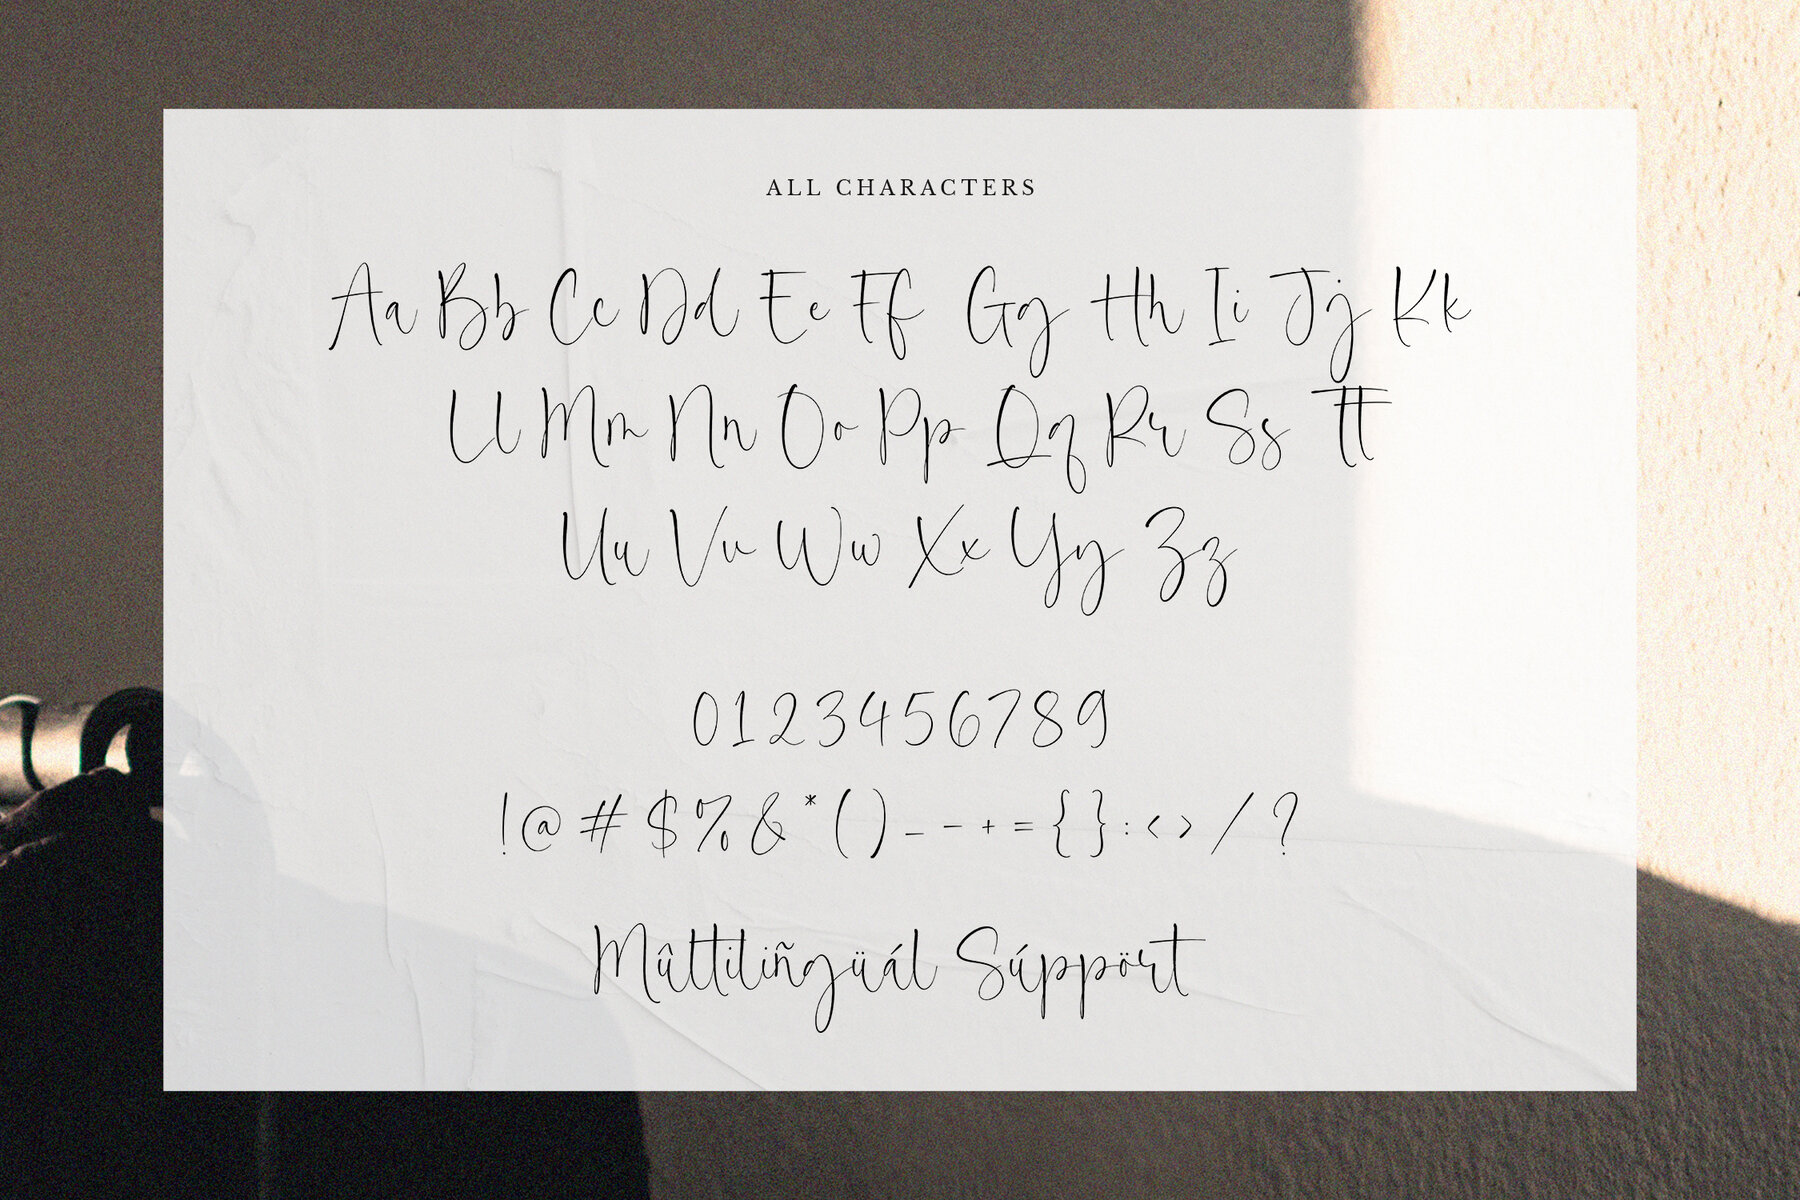 ALL CHARACTERS
Aa Bb Cc Dd Ee Ff Gg Hh Ii Jj Kk
Ll Mm Nn Oo Pp Qq Rr Ss Tt
Uu Vv Ww Xx Yy Zz
0123456789
!@#$%&*()_-+={}:<>/?
Mûltiliñgüál Súppört